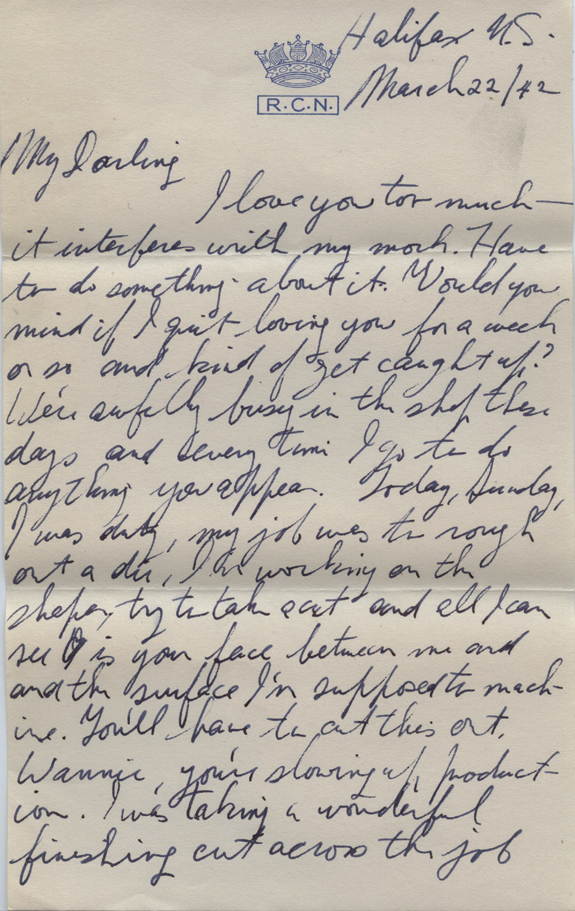 Halifax N.S.
R.C.N.
March 22/42
My Darling
I love you too much—
it interferes with my work. Have
to do something about it. Would you
mind if I quit loving you for a week
or so and kind of get caught up?
We're awfully busy in the shop these
days and every time I go to do
anything you appear. Today, Sunday,
I was duty, my job was to rough
out a die, I'm working on the
shaper, try to take a cut and all I can
see is your face between me and
and the surface I'm supposed to mach-
ine. You'll have to cut this out,
Wannie, you're slowing up product-
ion. I was taking a wonderful
finishing cut across the job